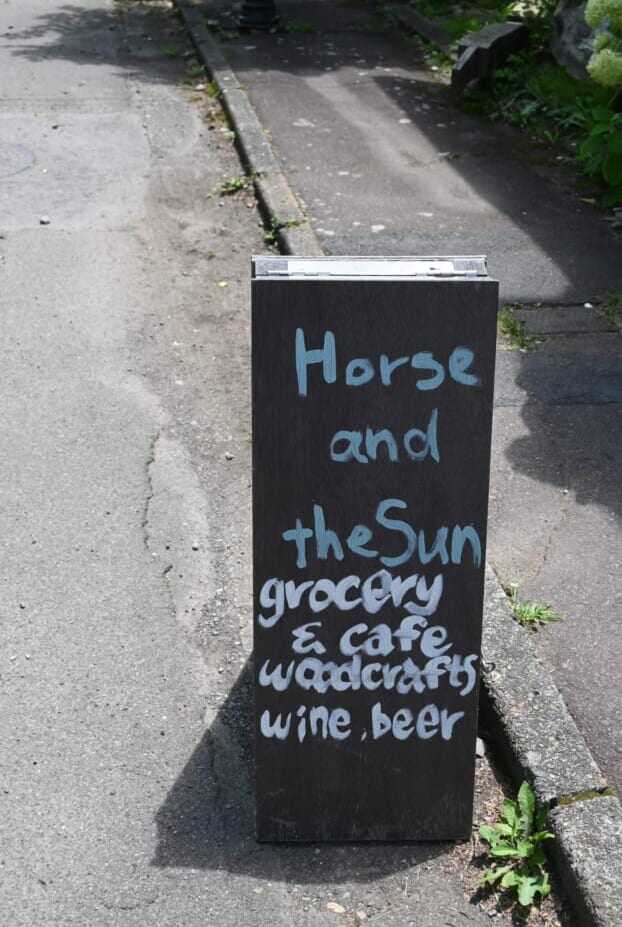 Horse
and
the Sun
grocery
& cafe
woodcrafts
wine, beer